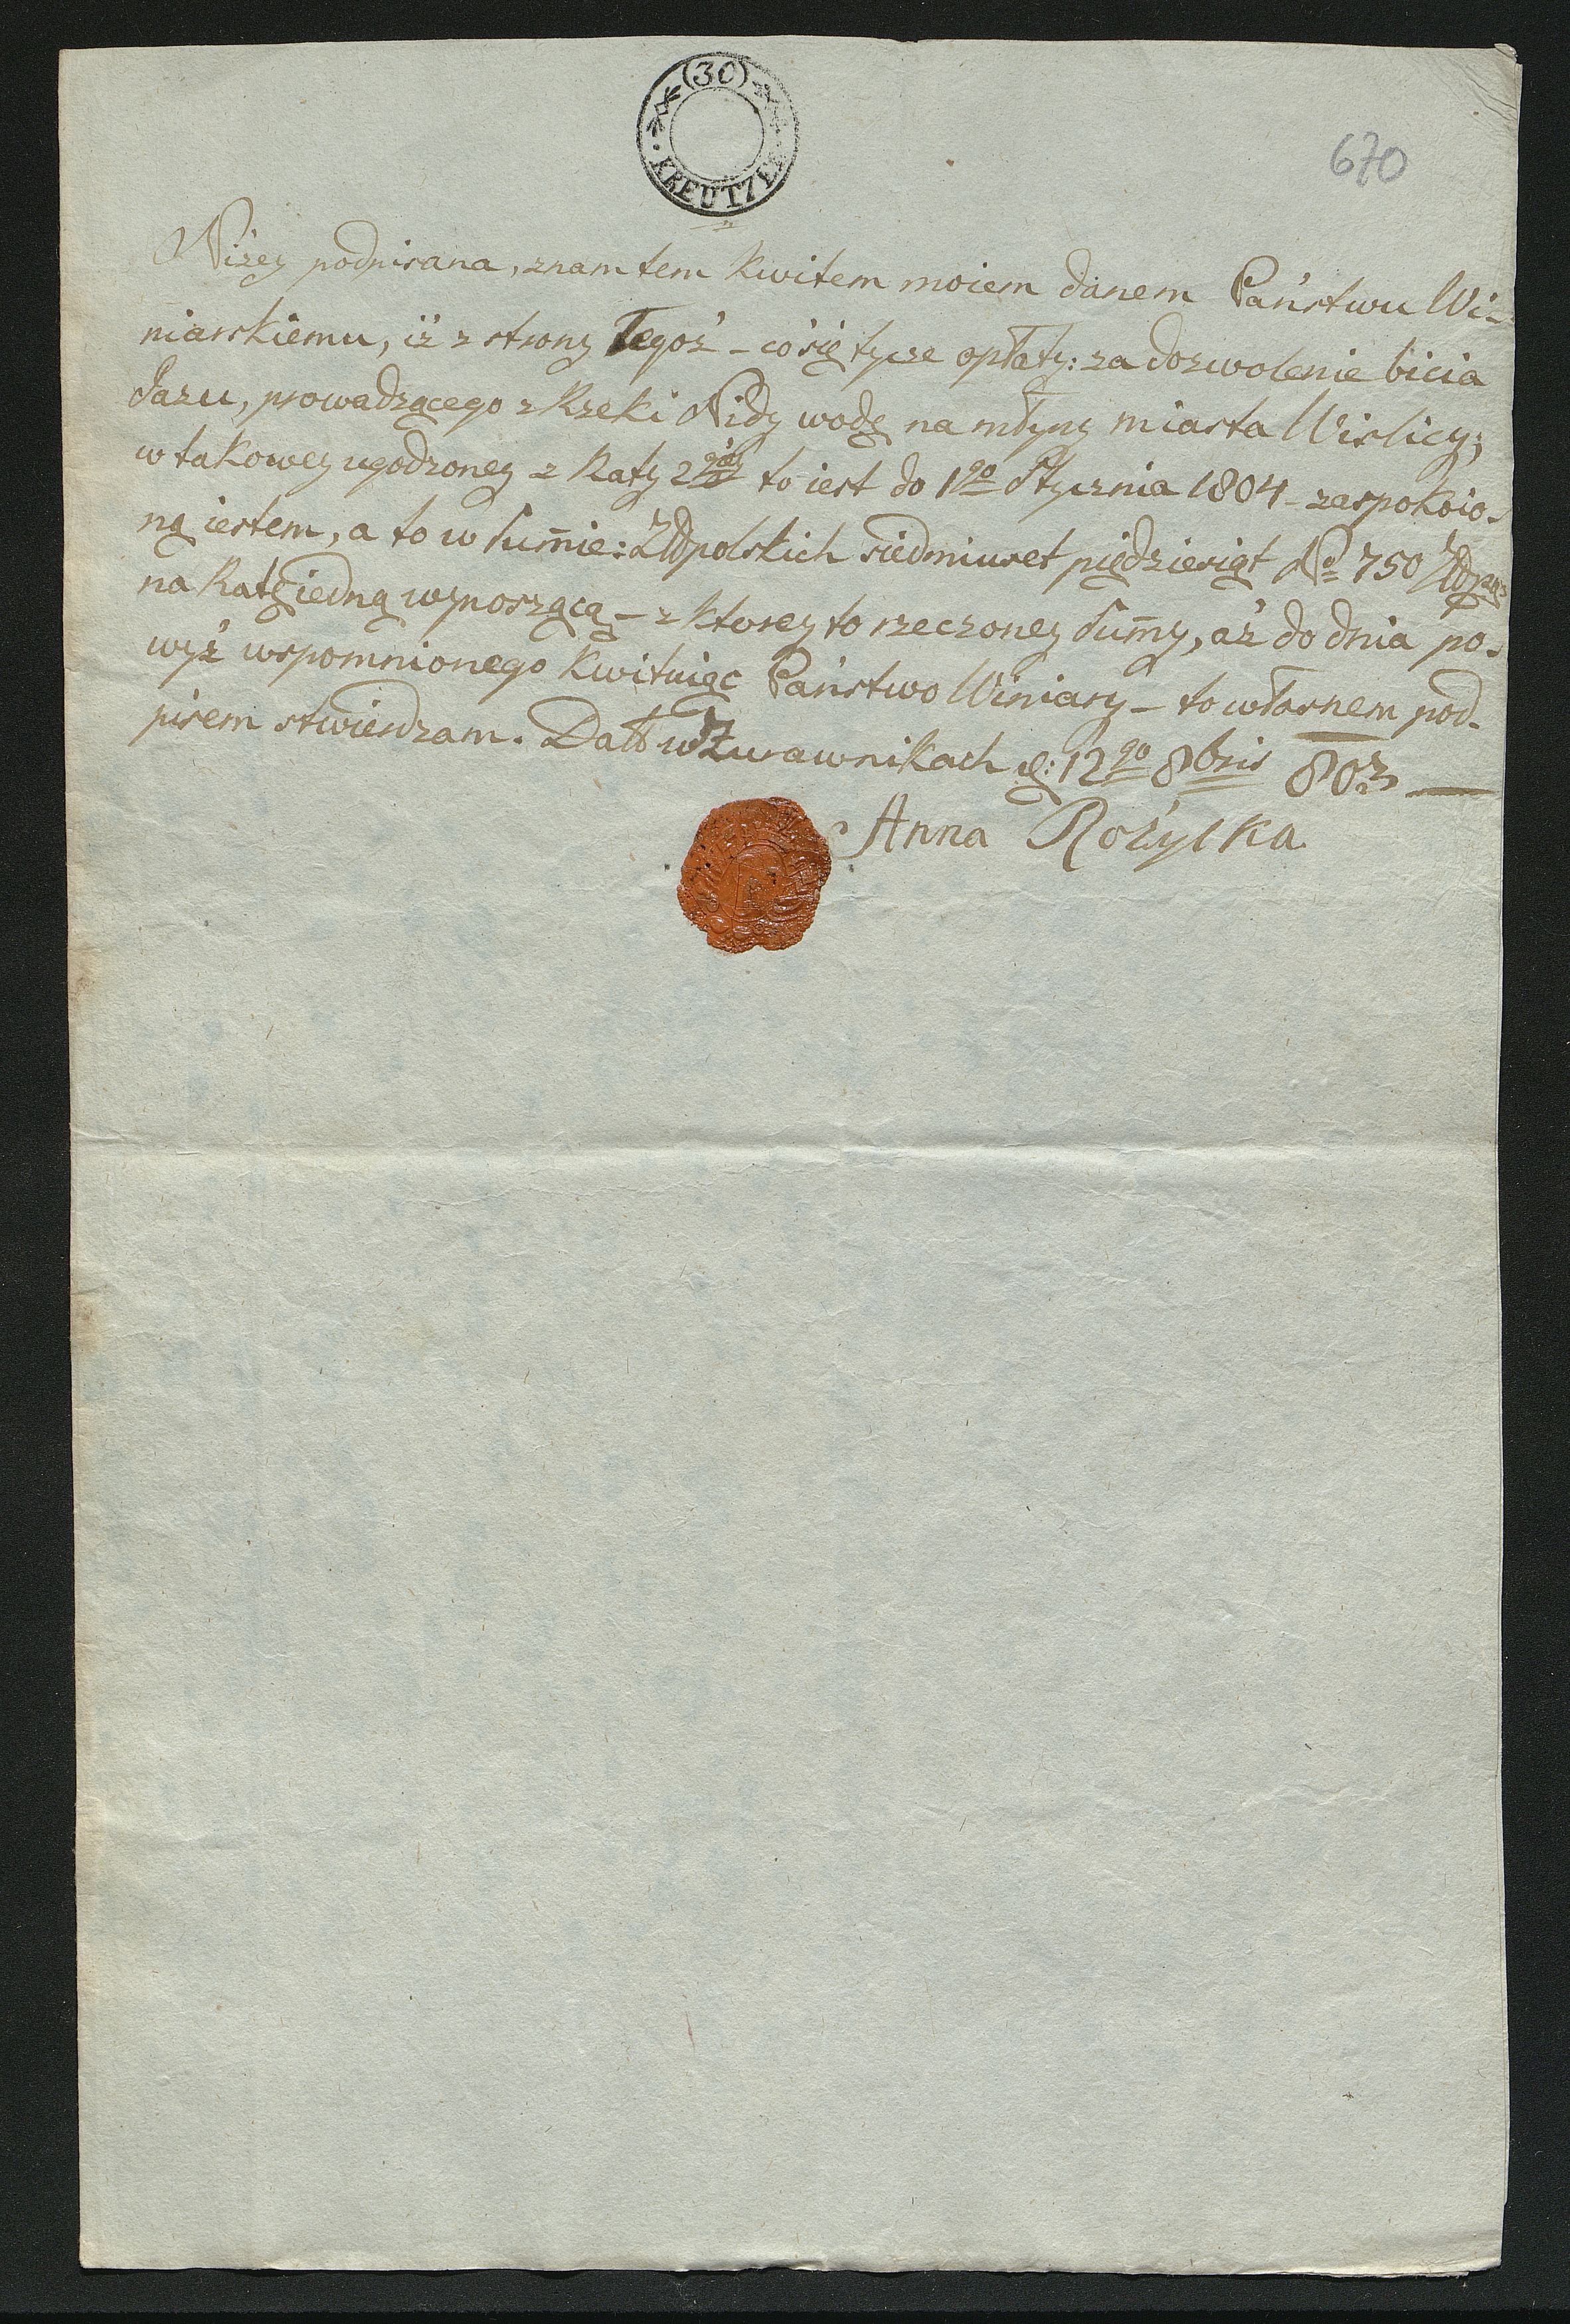 (30)
KREUTZER
670
Niżey podpisana, znam tem kwitem moiem danem Państwu Wi-
niarskiemu, iż z strony Tegoż – co się tycze opłaty: za dozwolenie bicia
Jazu, prowadzącego z Rzeki Nidy wodę na młyny miasta Wislicy;
w takowey ugodzoney z Raty 2giey to iest do 1go Stycznia 1804 – zaspokoio-
ną iestem, a to w sum̄ie: Złłpolskich siedmiuset pięдziesiąt No 750 Złłp
na Ratę iedną wynoszącą – z ktorey to rzeczoney sum̄y, aż do dnia po-
wyż wspomnionego kwituiąc Państwo Winiary – to własnem pod-
pisem stwierdzam. Datt w Zurawnikach d: 12go 8bris 803
Anna Rożycka